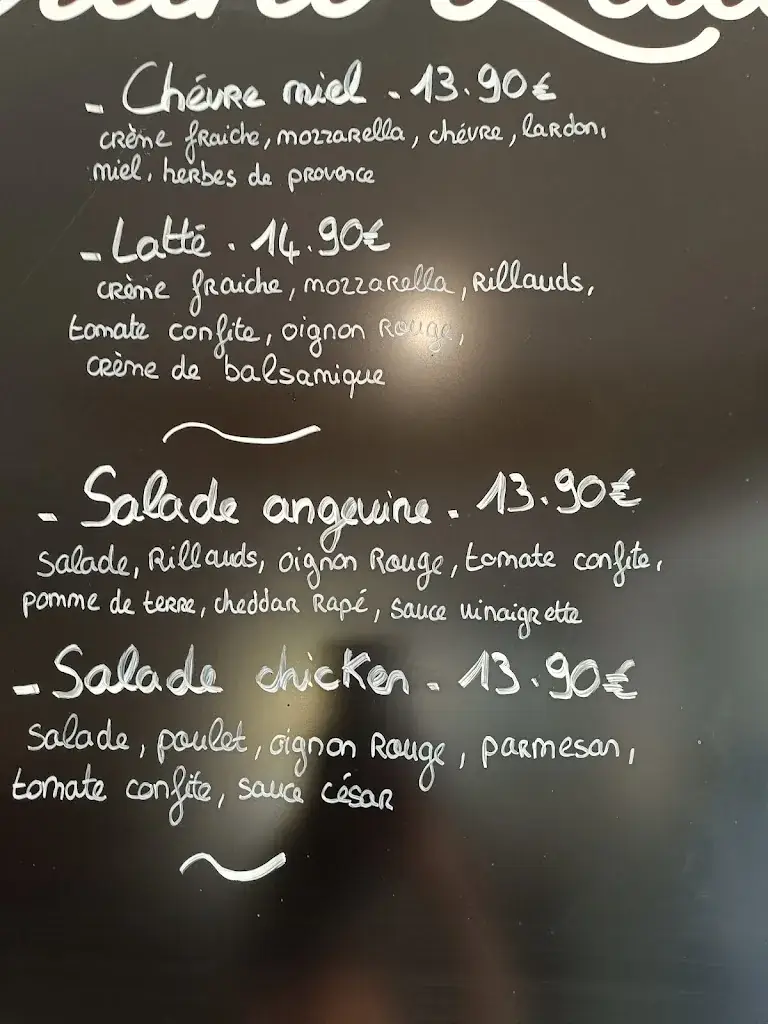 - Chévre miel - 13.90€
crème fraiche, mozzarella, chévre, lardon,
miel, herbes de provence
- Latté . 14.90€
crème fraiche, mozzarella, Rillauds,
tomate confite, oignon Rouge,
crème de balsamique
- Salade angevine - 13.90€
salade, Rillauds, oignon Rouge, tomate confite,
pomme de terre, cheddar Rapé, sauce vinaigrette
- Salade chicken - 13.90€
salade, poulet, oignon Rouge, parmesan,
tomate confite, sauce césar